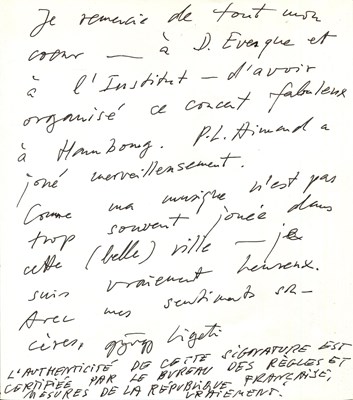 Je remercie de tout mon
coeur — à D. Evesque et
à l'Institut — d'avoir
organisé ce concert fabuleux
à Hambourg. P.L. Aimard a
joué merveilleusement.
Comme ma musique n'est pas
trop souvent jouée dans
cette (belle) ville — je
suis vraiment heureux.
Avec mes sentiments sin-
cères, György Ligeti
L'AUTHENTICITÉ DE CETTE SIGNATURE EST
CERTIFIÉE PAR LE BUREAU DES RÈGLES ET
MESURES DE LA RÉPUBLIQUE FRANÇAISE,
VRAIMENT.